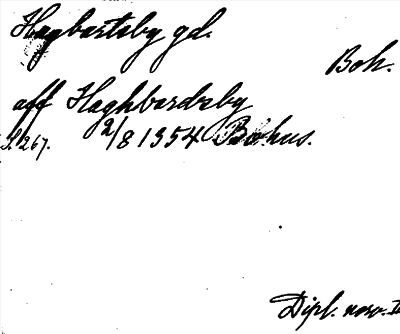 Hagbartsby gd.
Boh.
aff Haghbardzby
S. 267. 2/8 1354 Bohus.
Dipl. norv. I